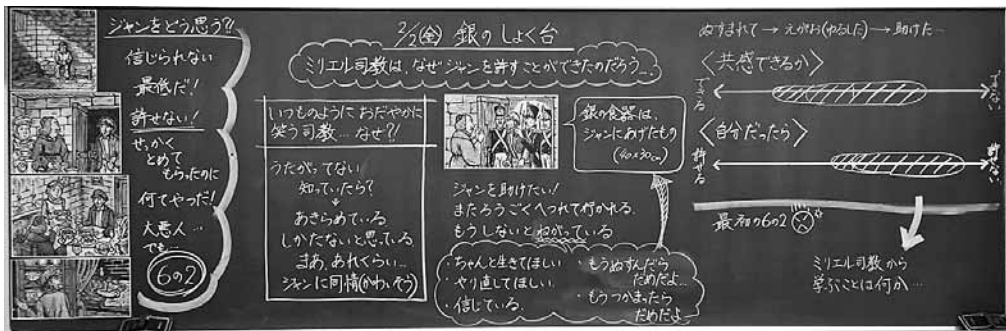 ジャンをどう思う?!
信じられない
最低だ!
許せない!
せっかく
とめて
もらったのに
何てやつだ!
大悪人…
でも…
6の2
2/2(金) 銀のしょく台
ミリエル司教は、なぜジャンを許すことができたのだろう…。
いつものようにおだやかに
笑う司教…なぜ?!
うたがってない
知っていたら?
あきらめている
しかたないと思っている
まあ、あれくらい…
ジャンに同情(かわいそう)
銀の食器は、
ジャンにあげたもの
(40×30cm)
ジャンを助けたい!
またろうごくへつれて行かれる。
もうしないとねがっている
・ちゃんと生きてほしい
・やり直してほしい。
・信じている。
・もうぬすんだら
だめだよ…
・もうつかまったら
だめだよ
ぬすまれて→えがお(ゆるした)→助けた…
〈共感できるか〉
できる
できない
〈自分だったら〉
許せる
許せない
最初の6の2
ミリエル司教から
学ぶことは何か…